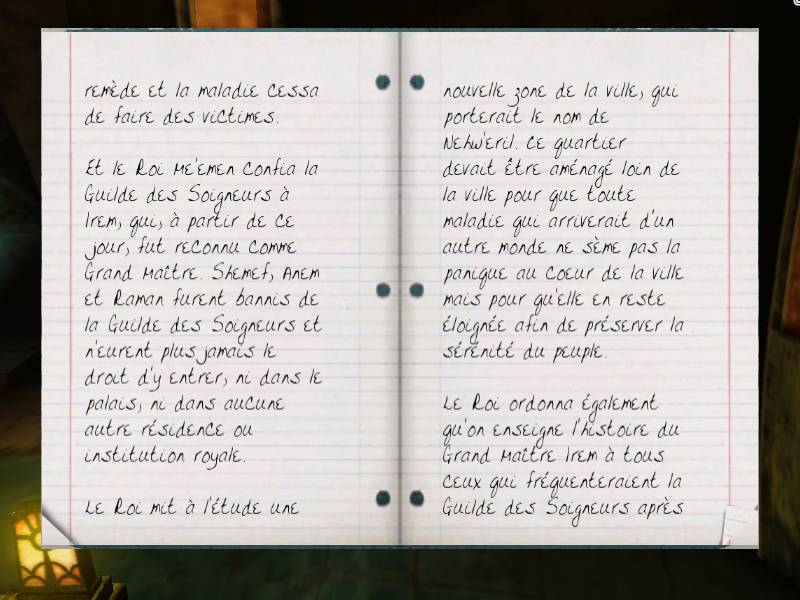 remède et la maladie cessa
de faire des victimes.
Et le Roi Me'emen confia la
Guilde des Soigneurs à
Irem, qui, à partir de ce
jour, fut reconnu comme
Grand Maître. Shemef, Anem
et Raman furent bannis de
la Guilde des Soigneurs et
n'eurent plus jamais le
droit d'y entrer, ni dans le
palais, ni dans aucune
autre résidence ou
institution royale.
Le Roi mit à l'étude une
nouvelle zone de la ville, qui
porterait le nom de
Nehw'eril. Ce quartier
devait être aménagé loin de
la ville pour que toute
maladie qui arriverait d'un
autre monde ne sème pas la
panique au coeur de la ville
mais pour qu'elle en reste
éloignée afin de préserver la
sérénité du peuple.
Le Roi ordonna également
qu'on enseigne l'histoire du
Grand Maître Irem à tous
ceux qui fréquenteraient la
Guilde des Soigneurs après